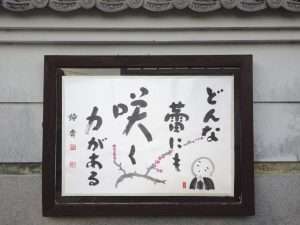 どんな
蕾にも
咲く
力がある